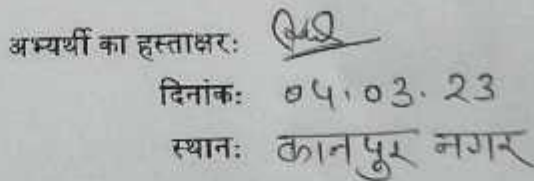 अभ्यर्थी का हस्ताक्षर:
दिनांक: 04.03.23
स्थान: कानपुर नगर